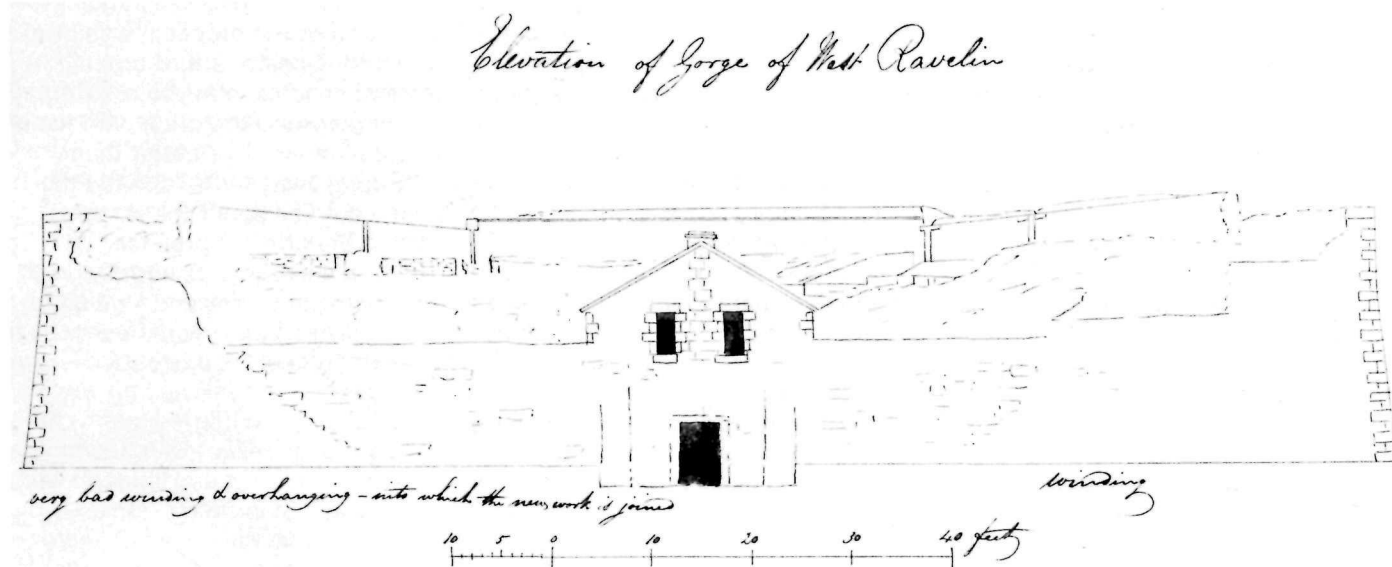 Elevation of Gorge of West Ravelin
very bad winding & overhanging - into which the new work is joined
winding
10 5 0 10 20 30 40 feet